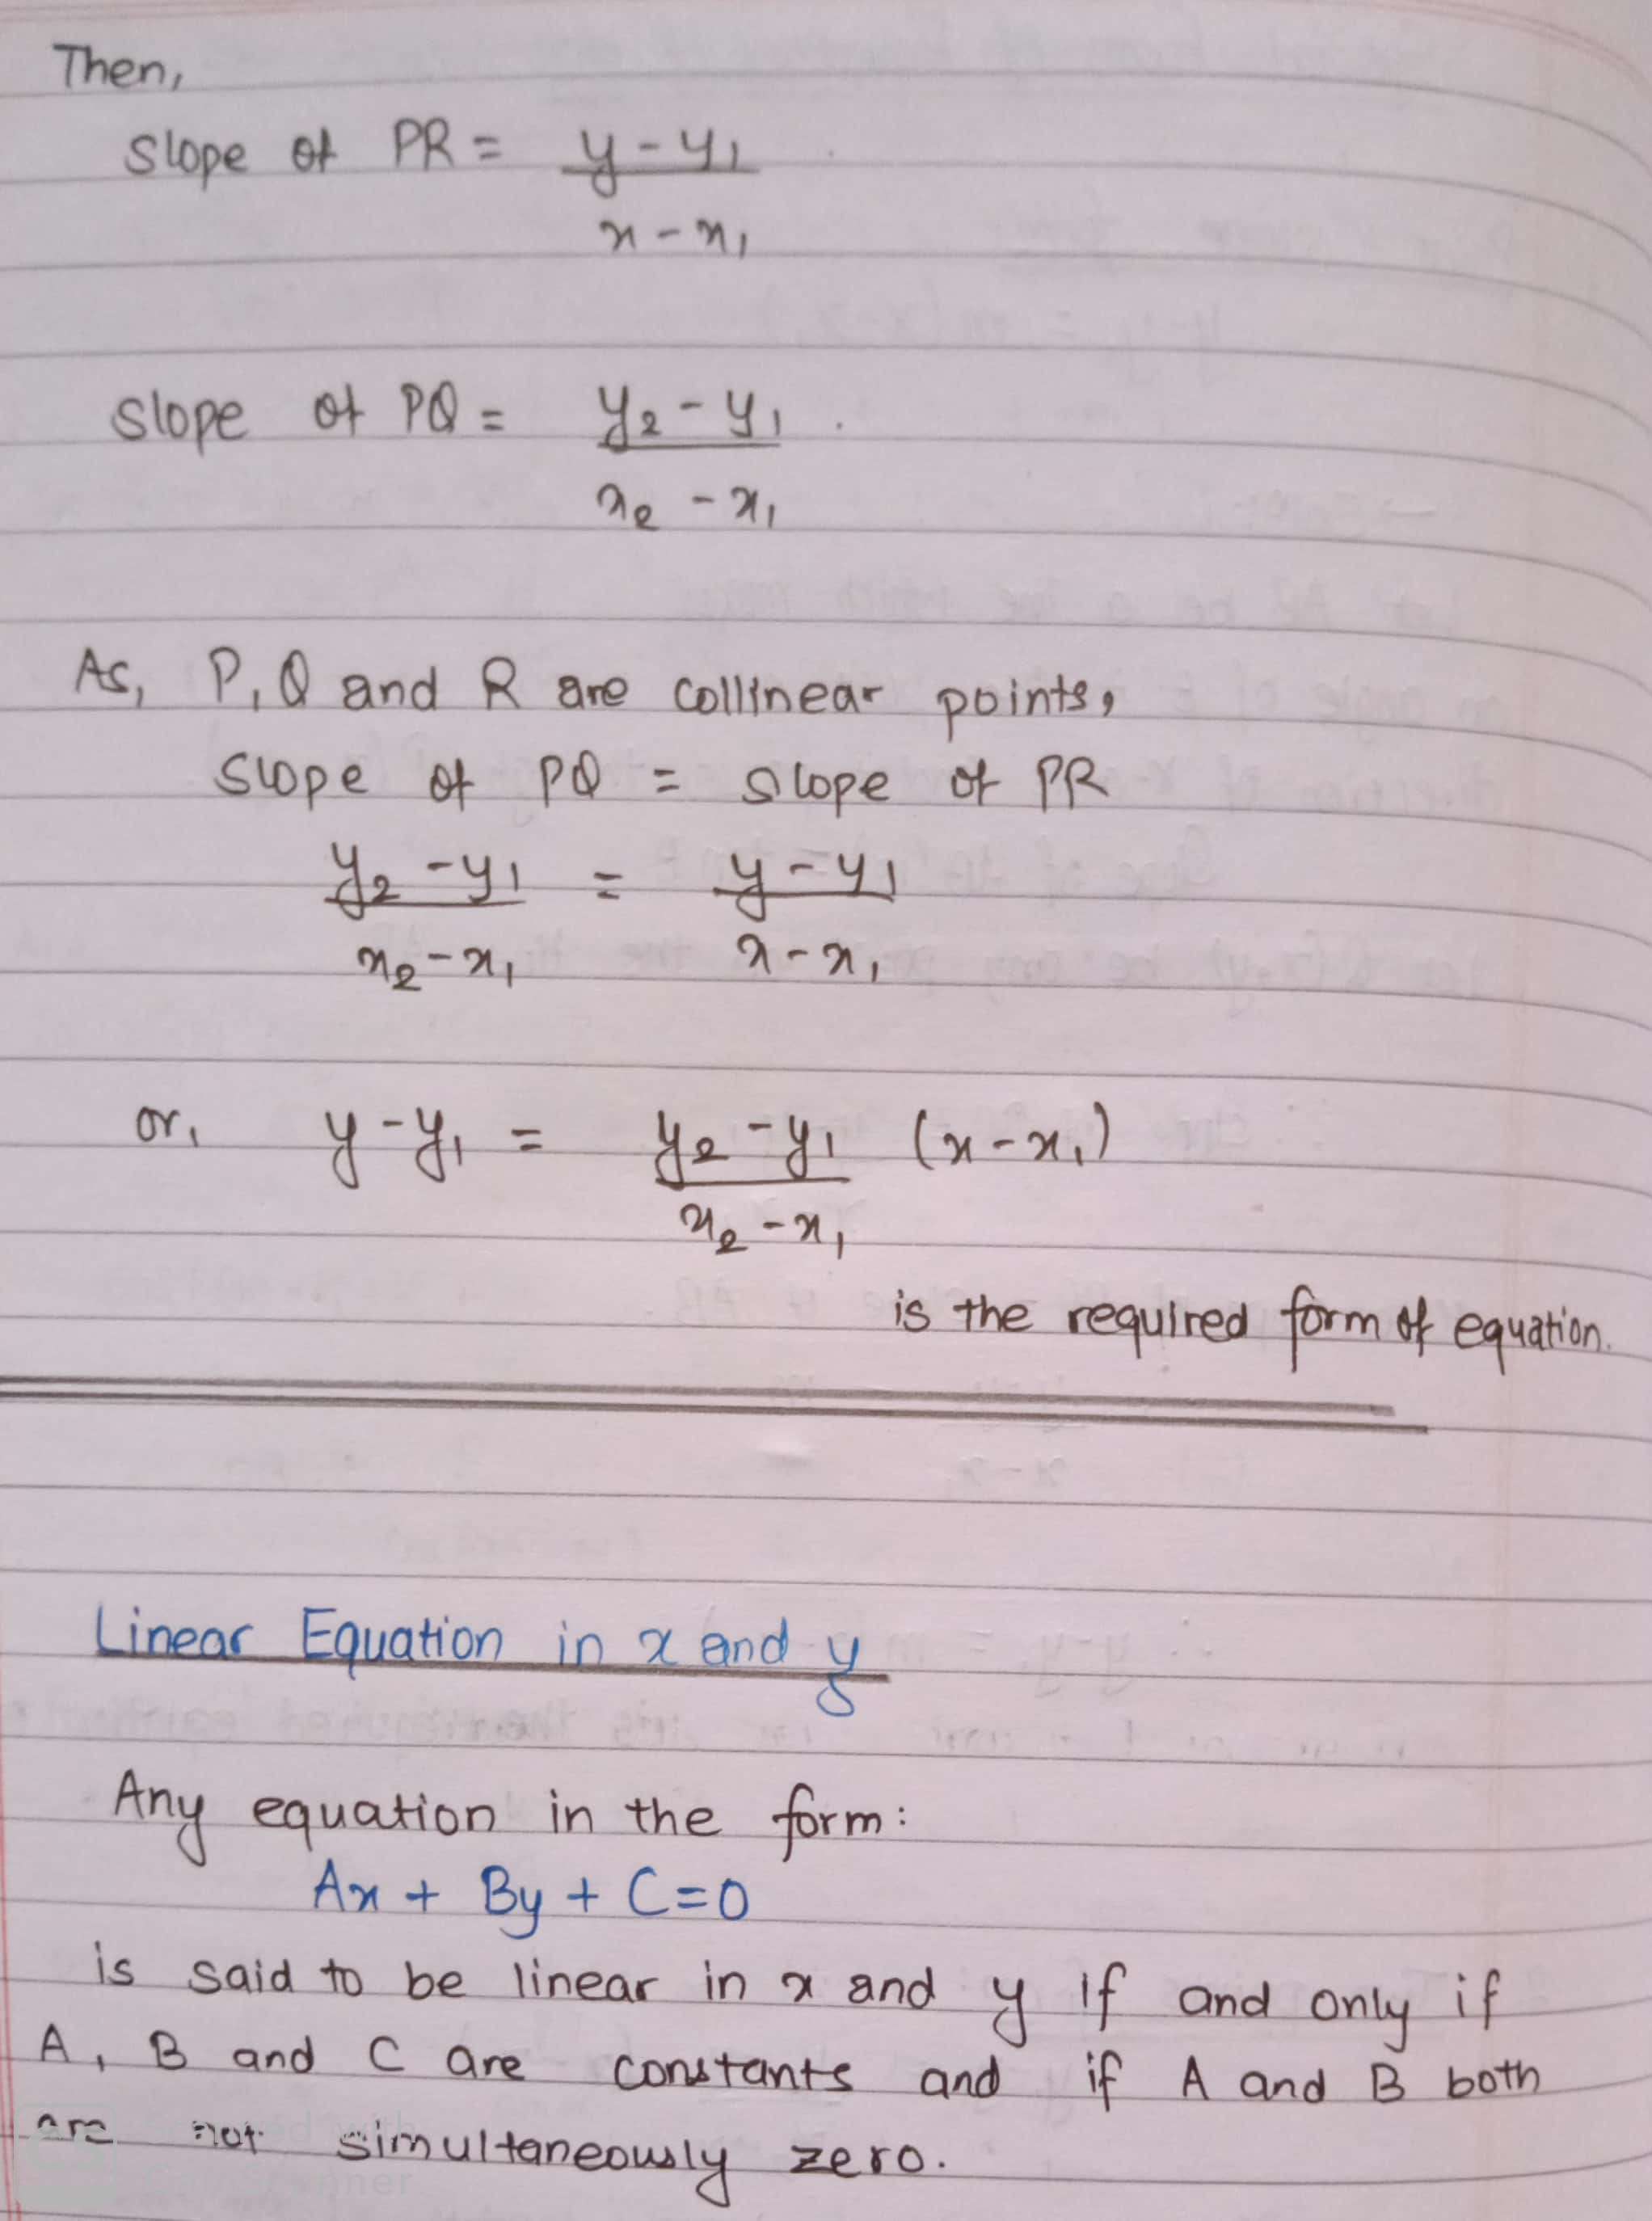 Then,
slope of PR = y - y₁
x - x₁
slope of PQ = y₂ - y₁
x₂ - x₁
As, P, Q and R are collinear points,
slope of PQ = slope of PR
y₂ - y₁ = y - y₁
x₂ - x₁ x - x₁
or, y - y₁ = y₂ - y₁ (x - x₁)
x₂ - x₁
is the required form of equation.
Linear Equation in x and y
Any equation in the form:
Ax + By + C = 0
is said to be linear in x and y if and only if
A, B and C are constants and if A and B both
are not simultaneously zero.